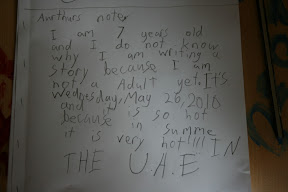 Aurthurs note
I am 7 years old
and I do not know
why I am writing a
story because I am
not a Adult yet. It's
Wednesday, May 26, 2016
and it is so hot
because in summe
it is very hot!!! IN
THE U.A.E